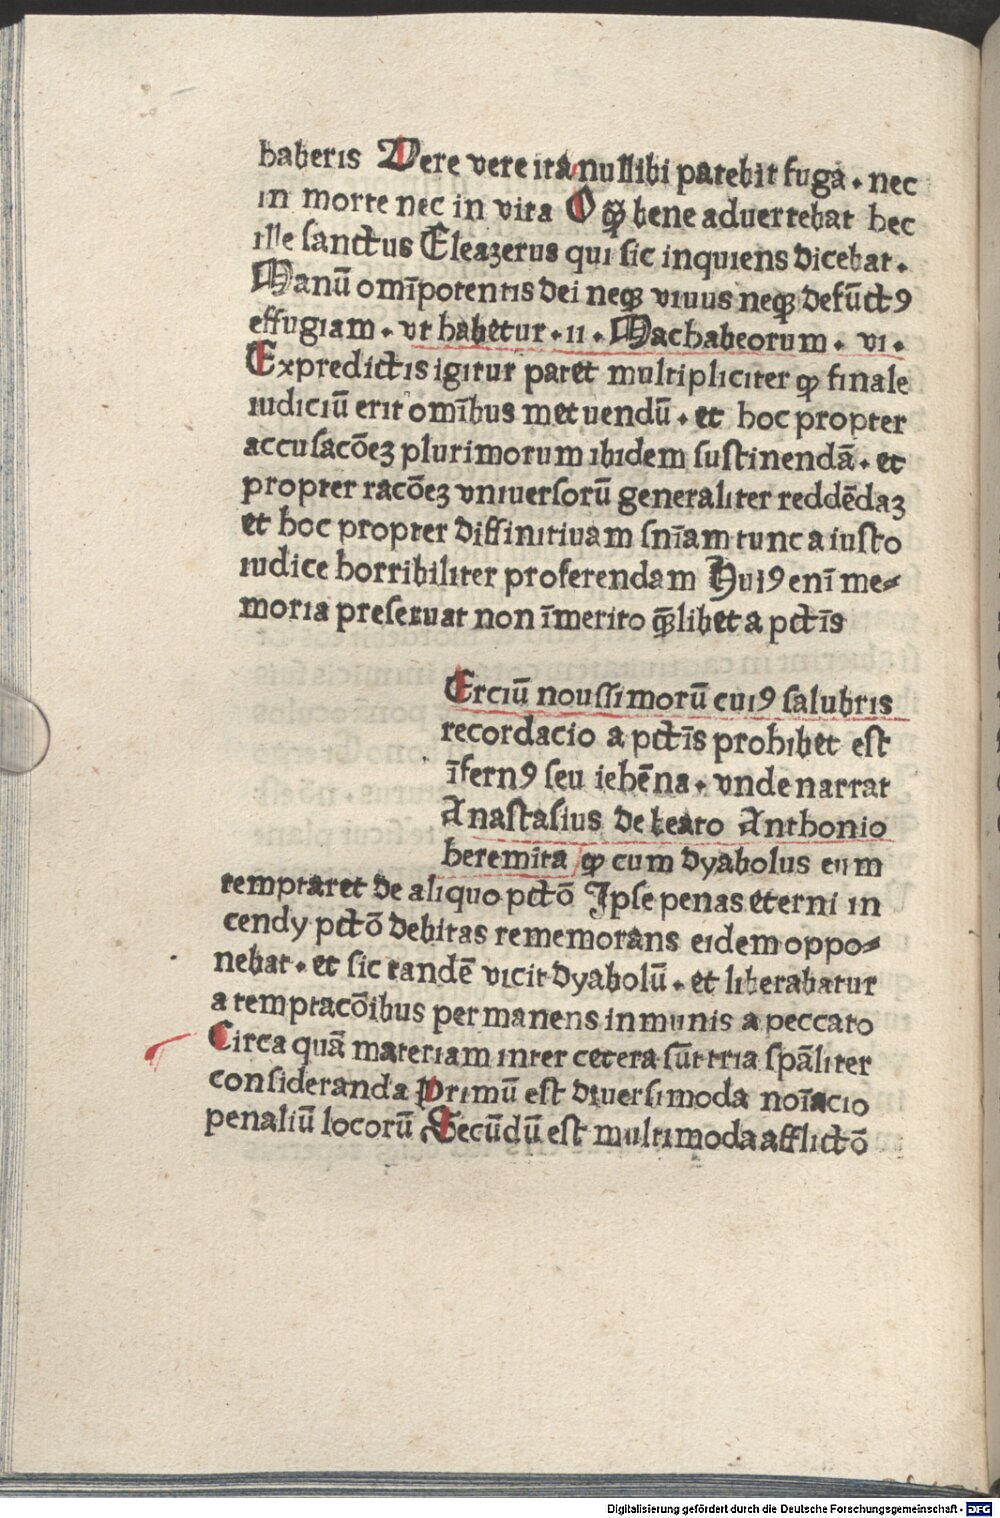 haberis Vere vere ita nullibi patebit fuga . nec
in morte nec in vita O qꝫ bene aduertebat hec
ille sanctus Eleazerus qui sic inquiens dicebat .
Manū omīpotentis dei neqꝫ viuus neqꝫ defūctꝰ
effugiam . vt habetur . ii . Machabeorum . vi .
Expredictis igitur patet multipliciter ꝙ finale
iudiciū erit omībus metuendū . et hoc propter
accusacōeꝫ plurimorum ibidem sustinendā . et
propter racōeꝫ vniuersorū generaliter reddēdaꝫ
et hoc propter diffinitiuam sniam tunc a iusto
iudice horribiliter proferendam Huiꝰ eni me-
moria preseruat non īmerito qꝫlibet a pctīs
Erciū nouissimorū cuiꝰ salubris
recordacio a pctīs prohibet est
īfernꝰ seu iehēna . vnde narrat
Anastasius de beato Anthonio
heremita ꝙ cum dyabolus eum
temptaret de aliquo pctō Ipse penas eterni in
cendy pctō debitas rememorans eidem oppo-
nebat . et sic tandē vicit dyabolū . et liberabatur
a temptacōibus permanens inmunis a peccato
Circa quā materiam inter cetera sūt tria spāliter
consideranda Primū est diuersimoda noīacio
penaliū locorū Secūdū est multimoda afflictō
Digitalisierung gefördert durch die Deutsche Forschungsgemeinschaft - DFG